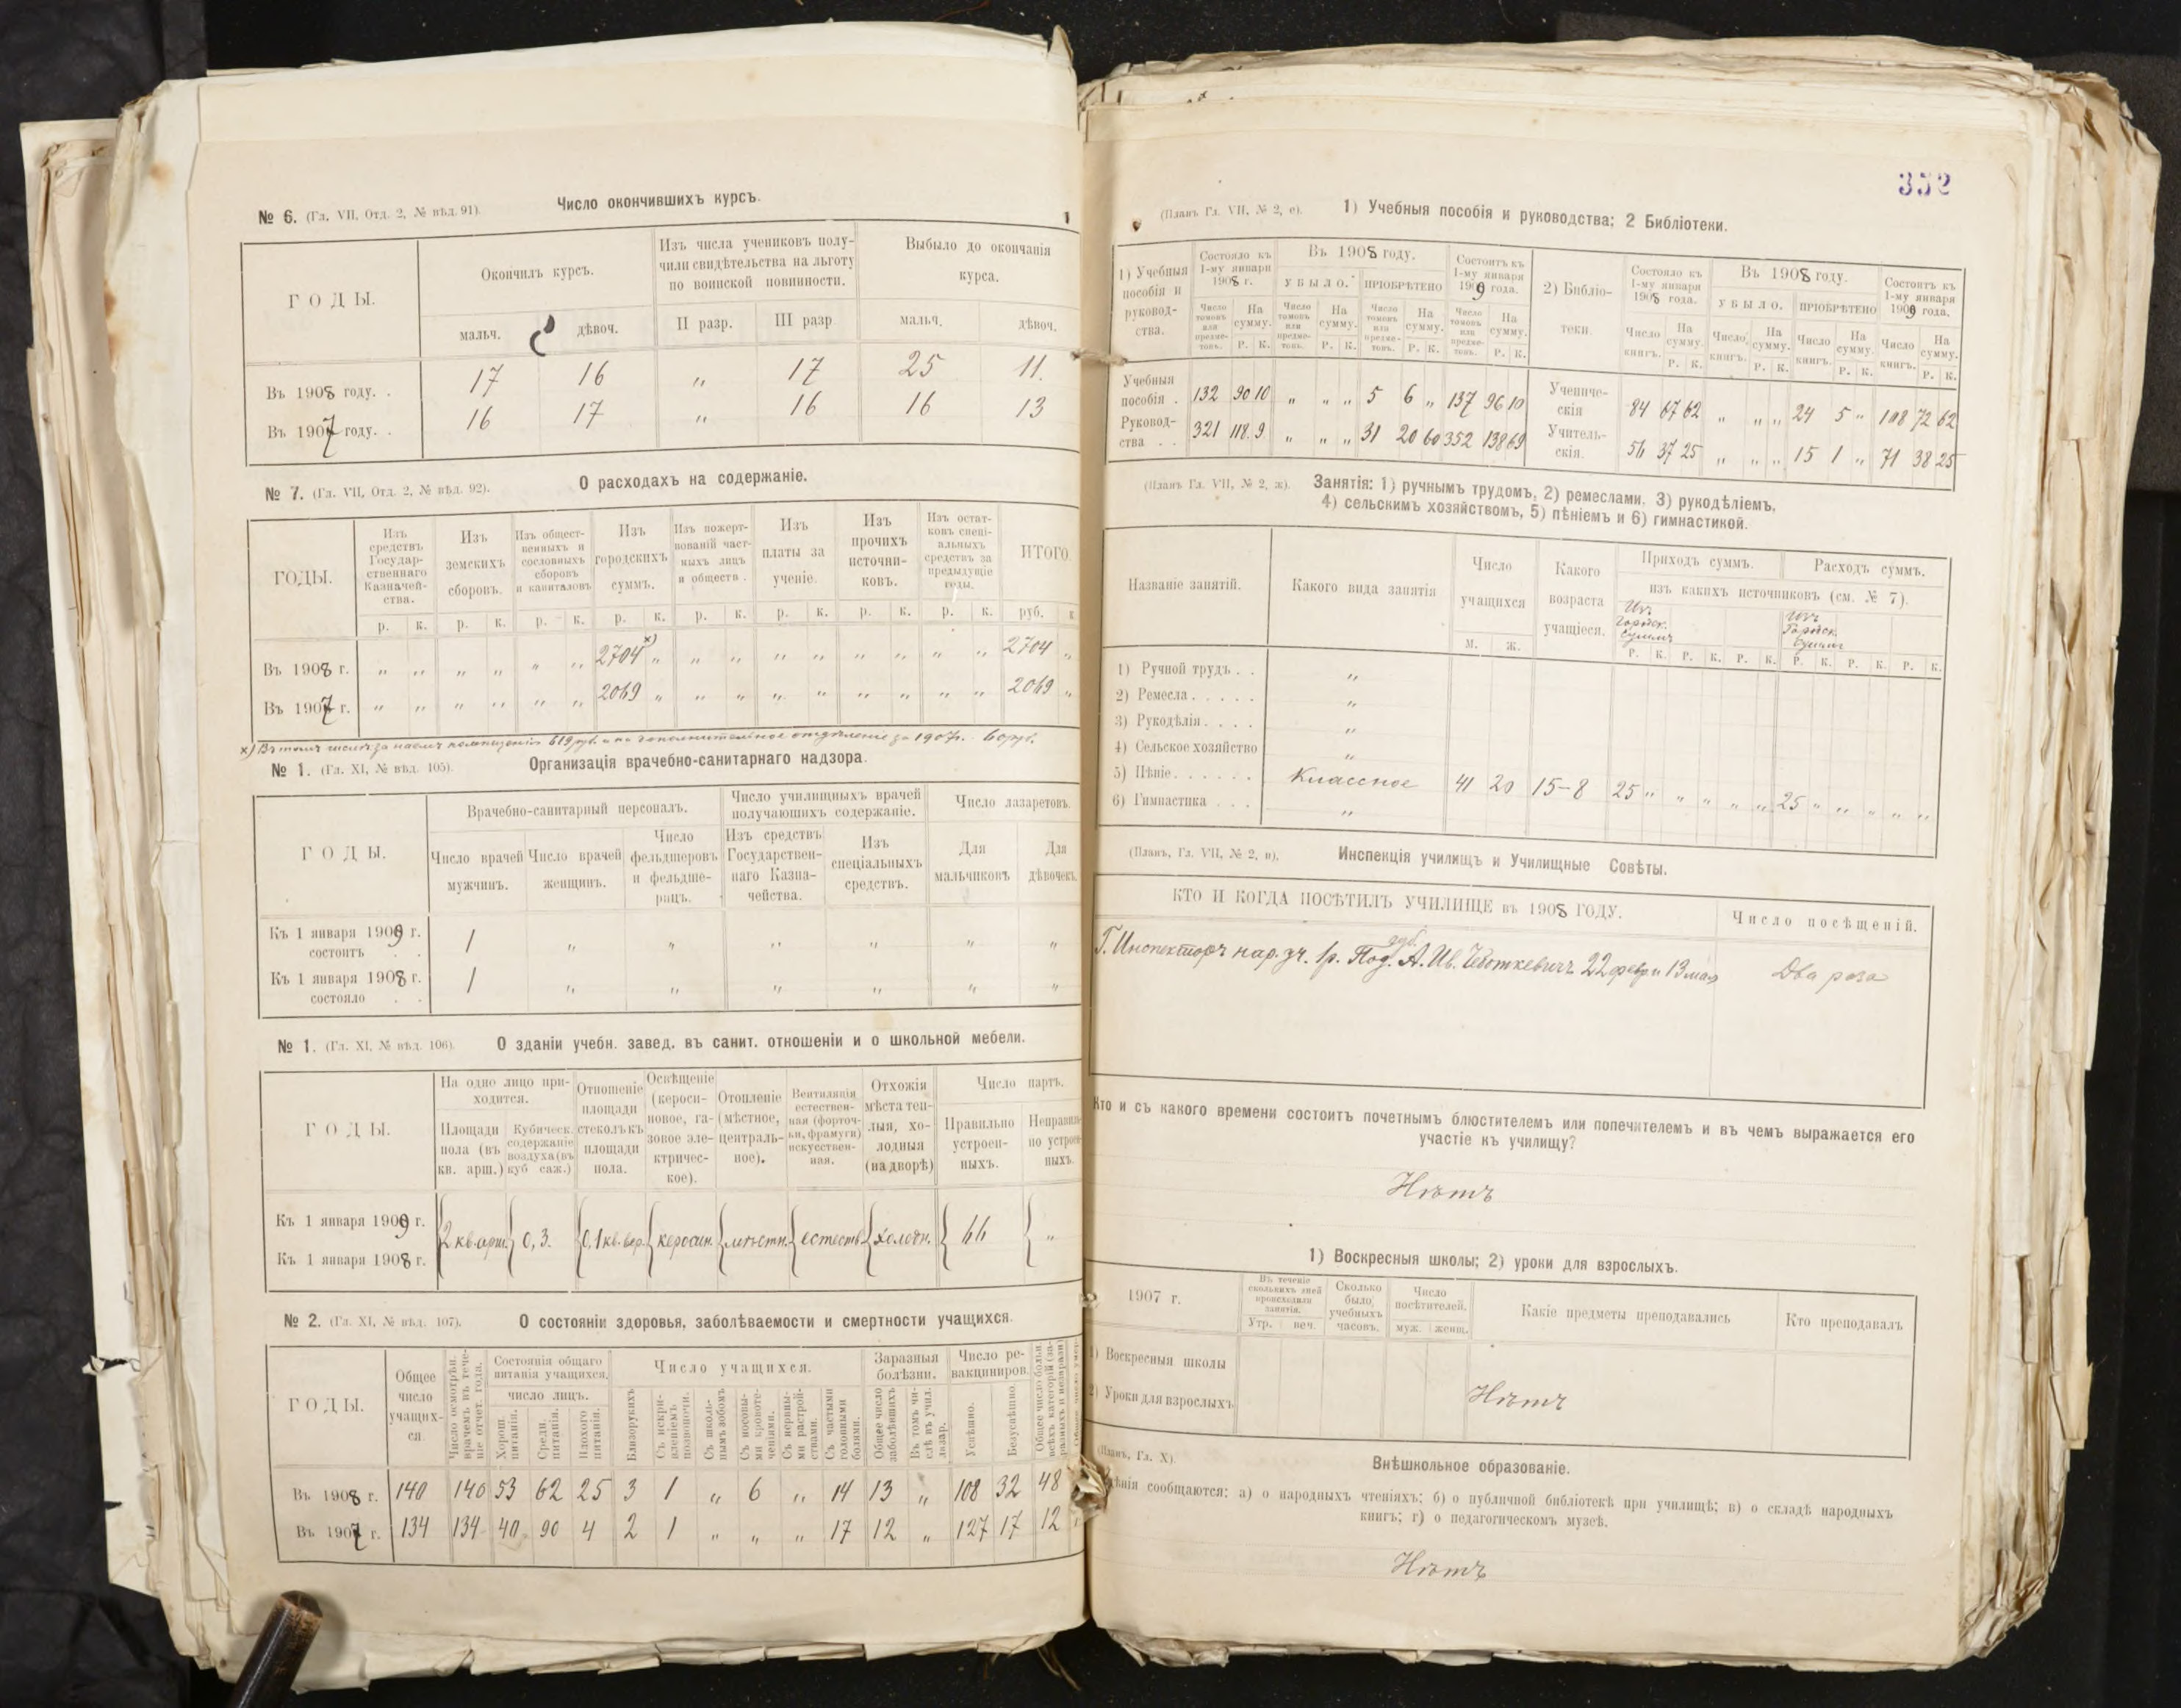 № 6. (Гл. VII, Отд. 2, № вѣд. 91).
Число окончившихъ курсъ.
ГОДЫ.
Окончилъ курсъ.
Изъ числа учениковъ полу-
чили свидѣтельства на льготу
по воинской повинности.
Выбыло до окончанія
курса.
мальч. дѣвоч. II разр. III разр мальч. дѣвоч.
Въ 1908 году. . 17 16 „ 17 25 11.
Въ 1907 году. . 16 17 „ 16 16 13
№ 7. (Гл. VII, Отд. 2, № вѣд. 92).
О расходахъ на содержаніе.
ГОДЫ.
Изъ
средствъ
Государ-
ственнаго
Казначей-
ства.
Изъ
земскихъ
сборовъ.
Изъ общест-
венныхъ и
сословныхъ
сборовъ
и капиталовъ
Изъ
городскихъ
суммъ.
Изъ пожерт-
вованій част-
ныхъ лицъ
и обществ.
Изъ
платы за
ученіе.
Изъ
прочихъ
источни-
ковъ.
Изъ остат-
ковъ спеці-
альныхъ
средствъ за
предыдущіе
годы.
ИТОГО.
р. к. р. к. р. к. р. к. р. к. р. к. р. к. р. к. руб. к
Въ 1908 г. „ „ „ „ „ „ 2704 х) „ „ „ „ „ „ „ „ „ 2704 „
Въ 1907 г. „ „ „ „ „ „ 2069 „ „ „ „ „ „ „ „ „ 2069 „
х) Въ томъ числѣ за наемъ помещенія 619 руб. и на дополнительное отдѣленіе за 1907 г. 60 руб.
№ 1. (Гл. XI, № вѣд. 105).
Организація врачебно-санитарнаго надзора.
ГОДЫ.
Врачебно-санитарный персоналъ.
Число училищныхъ врачей
получающихъ содержаніе.
Число лазаретовъ.
Число врачей
мужчинъ.
Число врачей
женщинъ.
Число
фельдшеровъ
и фельдше-
рицъ.
Изъ средствъ
Государствен-
наго Казна-
чейства.
Изъ
спеціальныхъ
средствъ.
Для
мальчиковъ
Для
дѣвочекъ.
Къ 1 января 1909 г.
состоитъ . . 1 „ „ „ „ „ „
Къ 1 января 1908 г.
состояло . . 1 „ „ „ „ „ „
№ 1. (Гл. XI, № вѣд. 106).
О зданіи учебн. завед. въ санит. отношеніи и о школьной мебели.
ГОДЫ.
На одно лицо при-
ходится.
Площади
пола (въ
кв. арш.)
Кубическ.
содержаніе
воздуха (въ
куб саж.)
Отношеніе
площади
стеколъ къ
площади
пола.
Освѣщеніе
(кероси-
новое, га-
зовое эле-
ктричес-
кое).
Отопленіе
(мѣстное,
централь-
ное).
Вентиляція
естествен-
ная (форточ-
ки, фрамуги)
искусствен-
ная.
Отхожія
мѣста теп-
лыя, хо-
лодныя
(на дворѣ)
Число партъ.
Правильно
устроен-
ныхъ.
Неправиль-
но устроен-
ныхъ.
Къ 1 января 1909 г.
Къ 1 января 1908 г.
2 кв. арш. 0,3. 0,1 керосин. мѣстн. естеств. холодн. 66 „
№ 2. (Гл. XI, № вѣд. 107).
О состояніи здоровья, заболѣваемости и смертности учащихся.
ГОДЫ.
Общее
число
учащих-
ся.
Число осмотрѣн.
врачемъ въ тече-
ніе отчет. года.
Состоянія общаго
питанія учащихся.
число лицъ.
Хорош.
питанія.
Средн.
питанія.
Плохого
питанія.
Число учащихся.
Близорукихъ
Съ искри-
вленіемъ
позвоночн.
Съ школь-
нымъ зобомъ
Съ носовы-
ми кровоте-
ченіями.
Съ нервны-
ми растрой-
ствами.
Съ частыми
головными
болями.
Заразныя
болѣзни.
Общее число
заболѣвшихъ
Въ томъ чи-
слѣ въ учил.
лазар.
Число ре-
вакциниров.
Успѣшно.
Безуспѣшно.
Общее число больн.
всѣхъ категорій (за-
разныхъ и незаразн.)
Въ 1908 г. 140 140 53 62 25 3 1 „ 6 „ 14 13 „ 108 32 48
Въ 1907 г. 134 134 40 90 4 2 1 „ „ „ 17 12 „ 127 17 12
352
(Планъ Гл. VII, № 2, е).
1) Учебныя пособія и руководства; 2 Библіотеки.
1) Учебныя
пособія и
руковод-
ства.
Состояло къ
1-му января
1908 г.
Въ 1908 году.
УБЫЛО. ПРІОБРѢТЕНО
Состоитъ къ
1-му января
1909 года.
Число
томовъ
или
предме-
товъ.
На
сумму.
Р. К.
Число
томовъ
или
предме-
товъ.
На
сумму.
Р. К.
Число
томовъ
или
предме-
товъ.
На
сумму.
Р. К.
Число
томовъ
или
предме-
товъ.
На
сумму.
Р. К.
2) Библіо-
теки.
Состояло къ
1-му января
1908 года.
Въ 1908 году.
УБЫЛО. ПРІОБРѢТЕНО
Состоитъ къ
1-му января
1909 года.
Число
книгъ.
На
сумму.
Р. К.
Число
книгъ.
На
сумму.
Р. К.
Число
книгъ.
На
сумму.
Р. К.
Число
книгъ.
На
сумму.
Р. К.
Учебныя
пособія . 132 90 10 „ „ „ 5 6 „ 137 96 10
Руковод-
ства . . 321 118. 9 „ „ „ 31 20 60 352 138 69
Учениче-
скія 84 67 62 „ „ „ 24 5 „ 108 72 62
Учитель-
скія. 56 37 25 „ „ „ 15 1 „ 71 38 25
(Планъ Гл. VII, № 2, ж).
Занятія: 1) ручнымъ трудомъ, 2) ремеслами, 3) рукодѣліемъ,
4) сельскимъ хозяйствомъ, 5) пѣніемъ и 6) гимнастикой.
Названіе занятій.
Какого вида занятія
Число
учащихся
м. ж.
Какого
возраста
учащіеся.
Приходъ суммъ. Расходъ суммъ.
изъ какихъ источниковъ (см. № 7).
Изъ
Городск.
суммъ
Изъ
Городск.
суммъ
Р. К. Р. К. Р. К. Р. К. Р. К. Р. К.
1) Ручной трудъ . . „
2) Ремесла . . . . . „
3) Рукодѣлія . . . . „
4) Сельское хозяйство „
5) Пѣніе . . . . . . Классное 41 20 15–8 25 „ „ „ „ „ 25 „ „ „ „ „
6) Гимнастика . . . „
(Планъ, Гл. VII, № 2, и).
Инспекція училищъ и Училищные Совѣты.
КТО И КОГДА ПОСѢТИЛЪ УЧИЛИЩЕ въ 1908 ГОДУ.
Число посѣщеній.
Г. Инспекторъ нар. уч. 1р. Под. губ. А. Ив. 22 февр и 13 мая Два раза
Кто и съ какого времени состоитъ почетнымъ блюстителемъ или попечителемъ и въ чемъ выражается его
участіе къ училищу?
Нѣтъ
1) Воскресныя школы; 2) уроки для взрослыхъ.
1907 г.
Въ теченіе
сколькихъ дней
происходили
занятія.
Утр. веч.
Сколько
было
учебныхъ
часовъ.
Число
посѣтителей.
муж. женщ.
Какіе предметы преподавались
Кто преподавалъ
1) Воскресныя школы
2) Уроки для взрослыхъ
Нѣтъ
(Планъ, Гл. X).
Внѣшкольное образованіе.
сообщаются: а) о народныхъ чтеніяхъ; б) о публичной библіотекѣ при училищѣ; в) о складѣ народныхъ
книгъ; г) о педагогическомъ музеѣ.
Нѣтъ